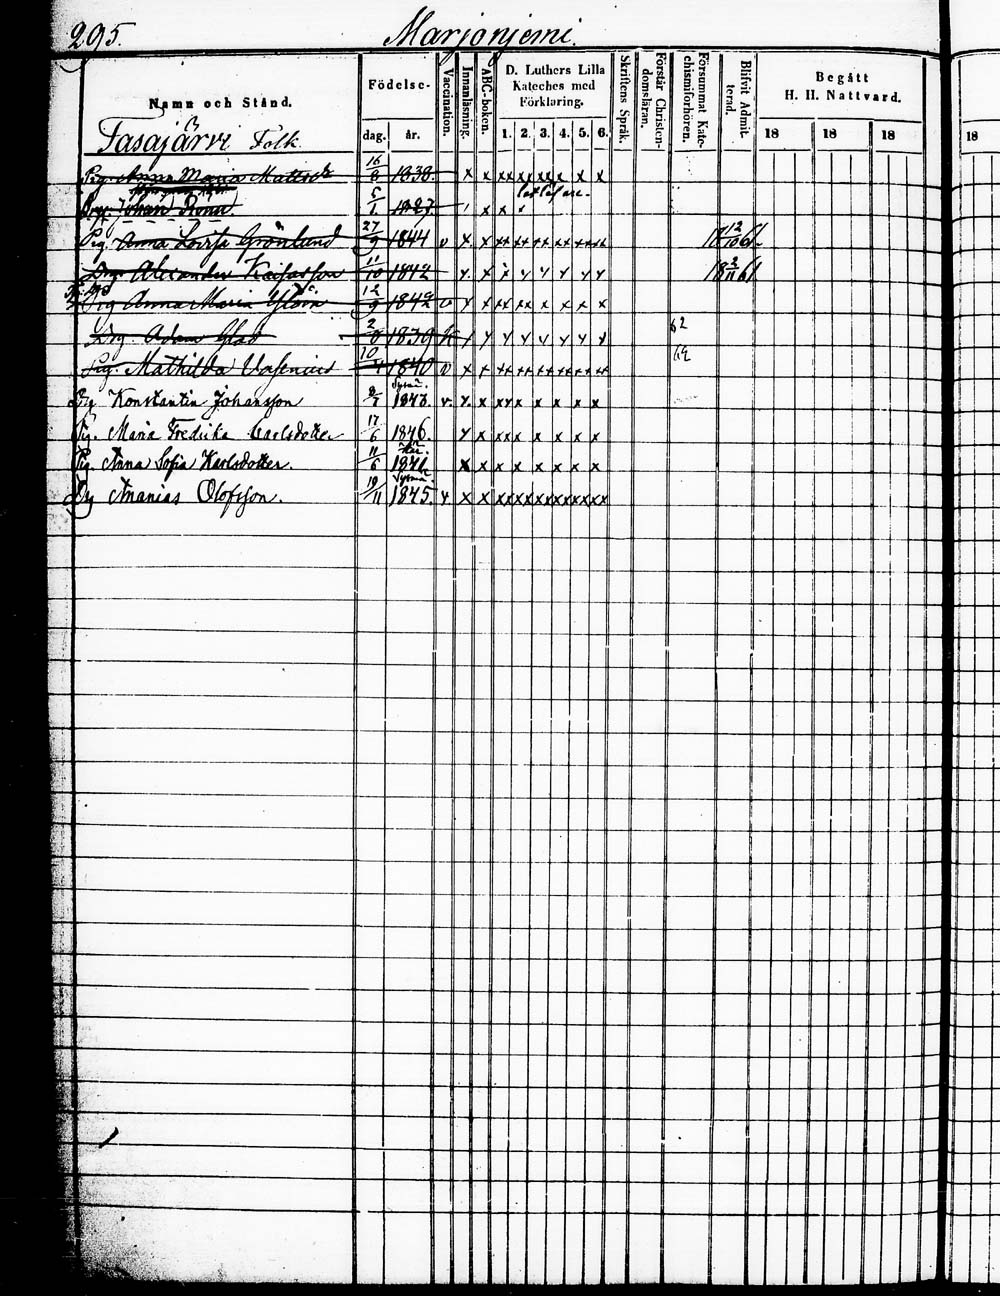 295. Marjonjemi.
Namn och Stånd. Födelse- dag. år. Vaccination. Innanläsning. ABC-boken. D. Luthers Lilla Kateches med Förklaring. 1. 2. 3. 4. 5. 6. Skriftens Språk. Förstår Christendomsläran. Försummat Katechismiförhören. Blifvit Admitterad. Begått H. H. Nattvard. 18 18 18 18
Tasajärvi Folk
Pig. Anna Maria Mattsd 16/8 1838. x x xx xx xx x x x
Drg. Johan Renn 5/1 1827 x x x
Pig. Anna Lovisa Grönlund 27/9 1844 v x x xx xx xx xx xx xx 12/10 61
Drg. Alexander Kaifasson 11/10 1842 x x x x x x x x 2/11 61
Pig Anna Maria 12/9 1842 v x x xx xx x x x x
Drg. Adam Glad 2/8 1839 x x x x x x x 62
Pig. Mathilda 10 1840 v x x xx xx xx xx xx xx 62
Drg Konstantin Johansson 8/7 1843 v. x x xx x x x x x
Pig. Maria Fredrika Carlsdotter 17/6 1846. x x xx x x x x x
Pig. Anna Sofia Karlsdotter. 11/6 x x x x x x x x
Drg Ananias Olofsson. 19/11 Sysmä 1845. v x x xx xx xx xx xx xx